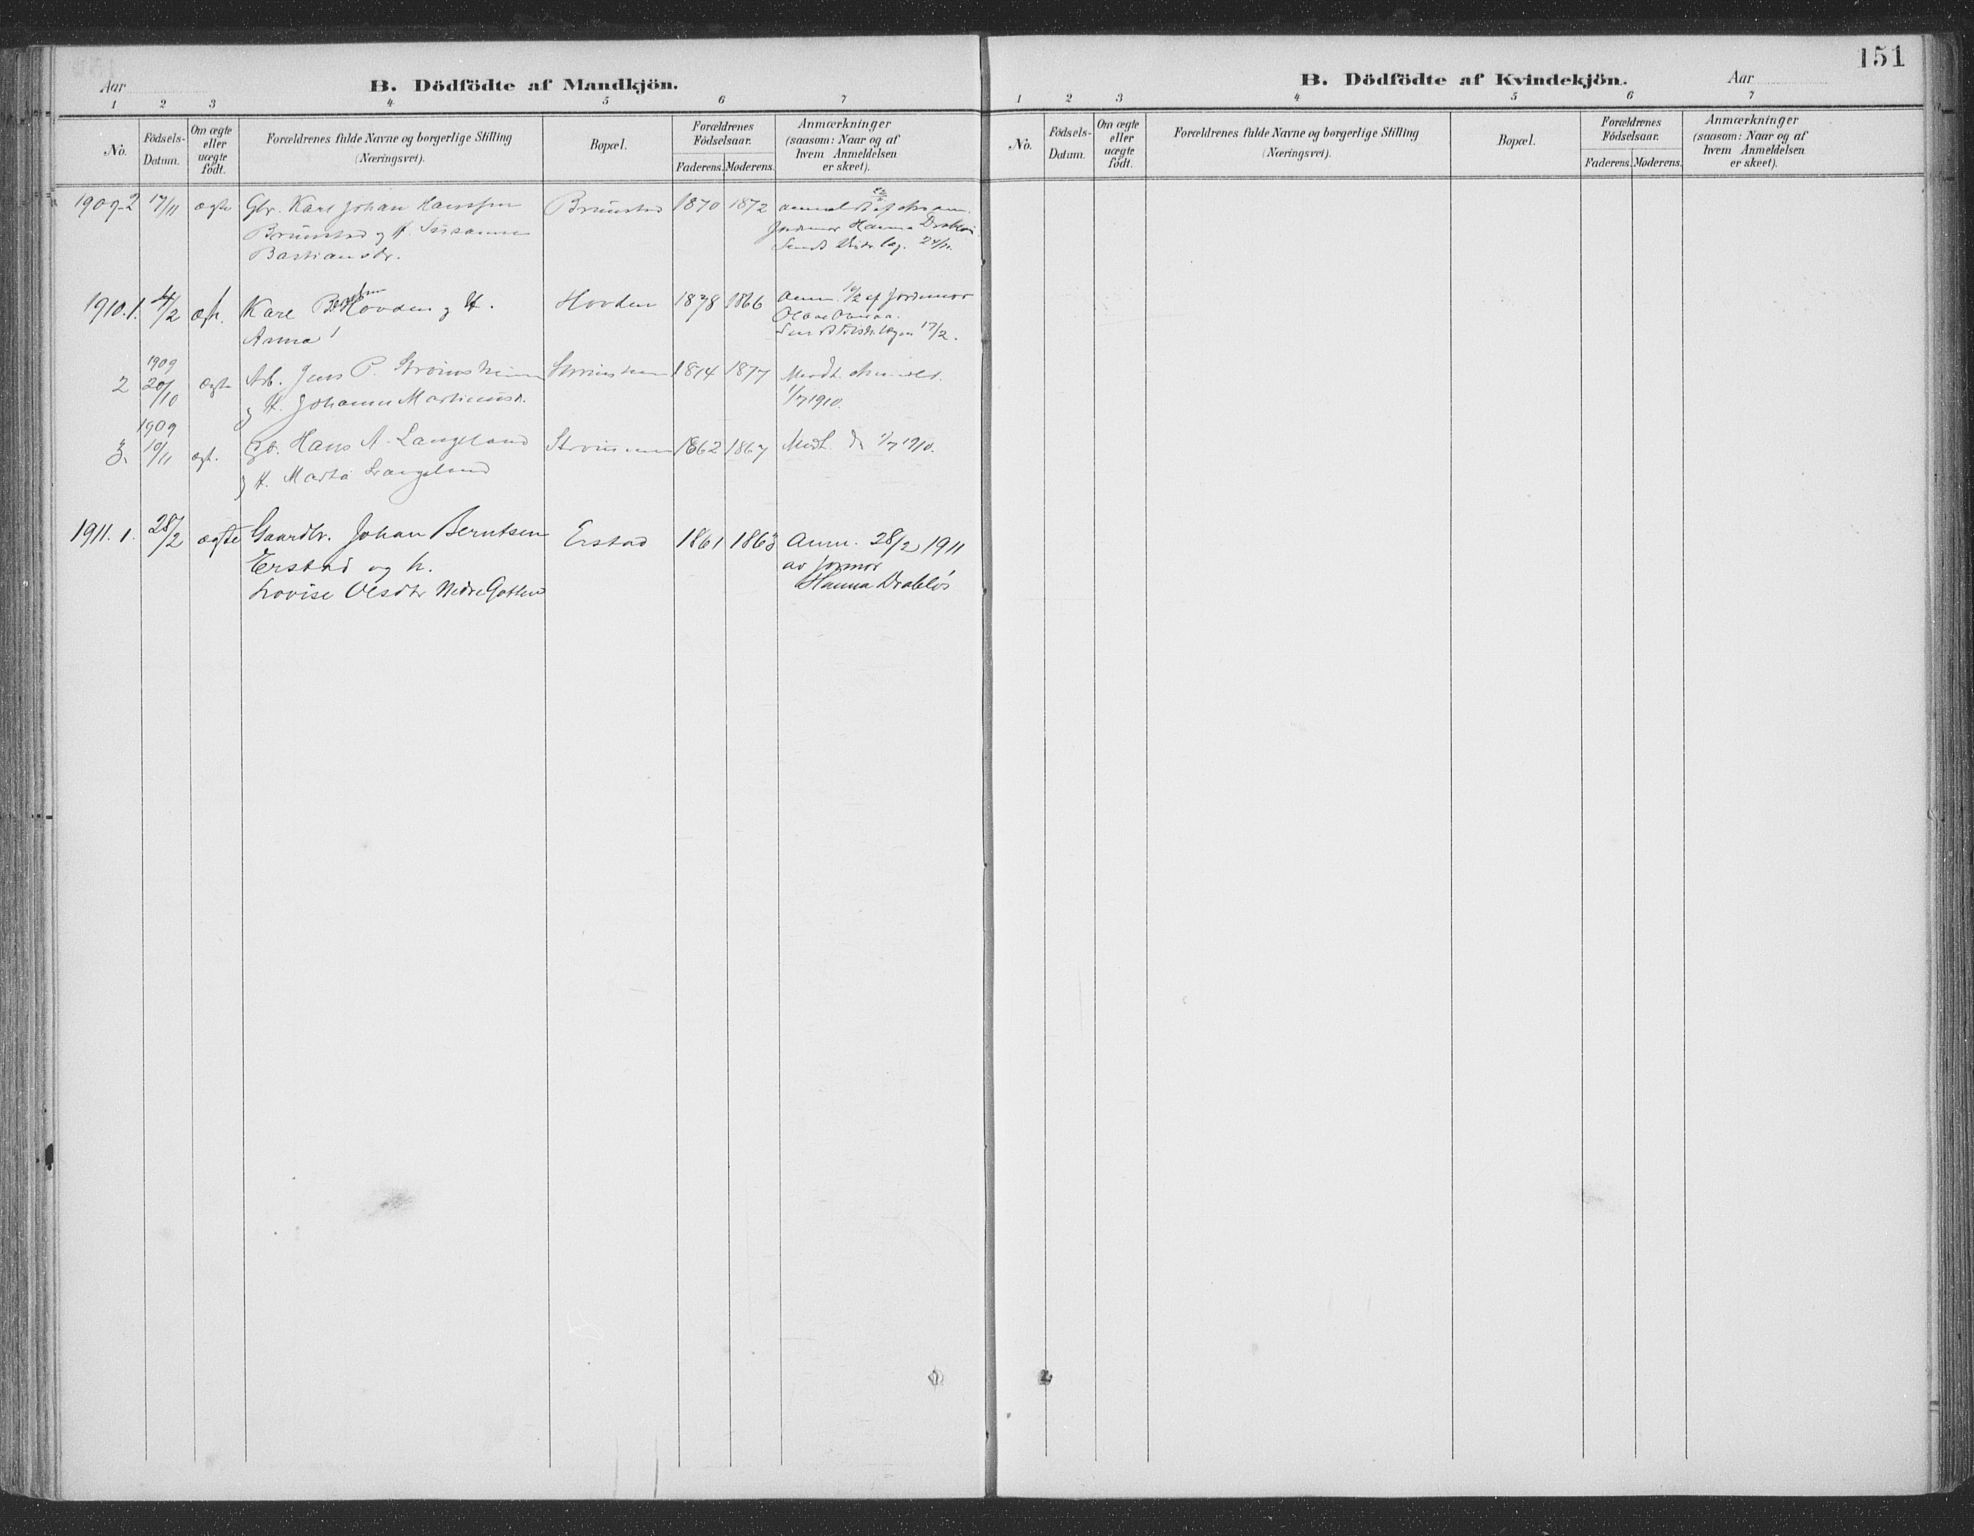 151
Aar
B. Dödfödte af Mandkjön.
1 2 3 4 5 6 7
No.
Födsels-
Datum.
Om ægte
eller
uægte
födt.
Forældrenes fulde Navne og borgerlige Stilling
(Næringsvei).
Bopæl.
Forældrenes
Födselsaar.
Faderens. Moderens.
Anmærkninger
(saasom: Naar og af
hvem Anmeldelsen
er skeet).
1909-2 17/11 ægte Gbr. Karl Johan Hanssen Brunstad 1870 1872
Brunstad og H. Susanne Jordmor Hanna Drabløs
Bastiansdr.
1910.1. 4/2 Karl Hovden og H. Hovden 1878 1866 Anm. 10/2 af Jordmor
Anna 17/2.
2 1909 20/10 ægte Arb. Jens P. Strømsheim Strømsheim 1874 1877
og H. Johanne Martinusd. 1/7 1910.
3. 1909 10/11 ægt. Gb. Hans A. Langeland 1862 1867 Medt. 1/7 1910.
og H. Marta Langeland
1911. 1. 28/2 ægte Gaardbr. Johan Berntsen Erstad 1861 1863 Anm. 28/2 1911
Erstad og h. av jormor
Lovise Olsdtr Nedre Hanna Drabløs
B. Dödfödte af Kvindekjön.
Aar
1 2 3 4 5 6 7
No.
Födsels-
Datum.
Om ægte
eller
uægte
födt.
Forældrenes fulde Navne og borgerlige Stilling
(Næringsvei).
Bopæl.
Forældrenes
Födselsaar.
Faderens. Moderens.
Anmærkninger
(saasom: Naar og af
hvem Anmeldelsen
er skeet).